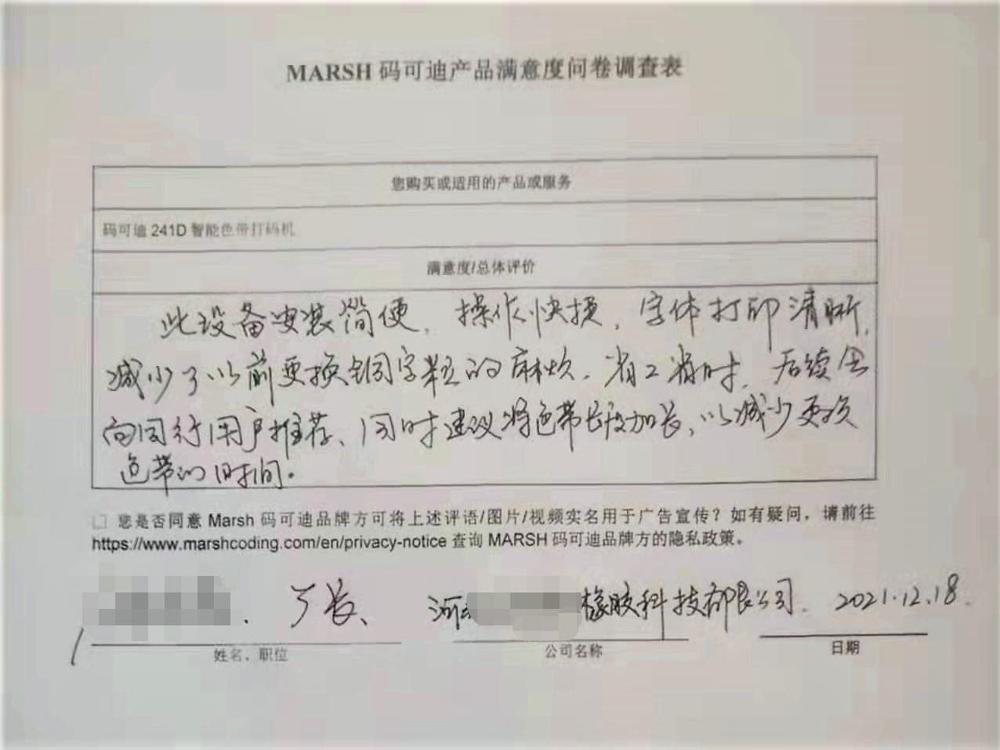 MARSH 码可迪产品满意度问卷调查表
您购买或适用的产品或服务
码可迪 241D 智能色带打码机
满意度/总体评价
此设备安装简便，操作快捷，字体打印清晰，
减少了以前更换铜字粒的麻烦，省工省时，后续会
向同行用户推荐、同时建议将色带长度加长，以减少更换
色带的时间。
□ 您是否同意 Marsh 码可迪品牌方可将上述评语/图片/视频实名用于广告宣传？如有疑问，请前往
https://www.marshcoding.com/en/privacy-notice 查询 MARSH 码可迪品牌方的隐私政策。
厂长、 河 橡胶科技有限公司. 2021.12.18.
姓名、职位 公司名称 日期